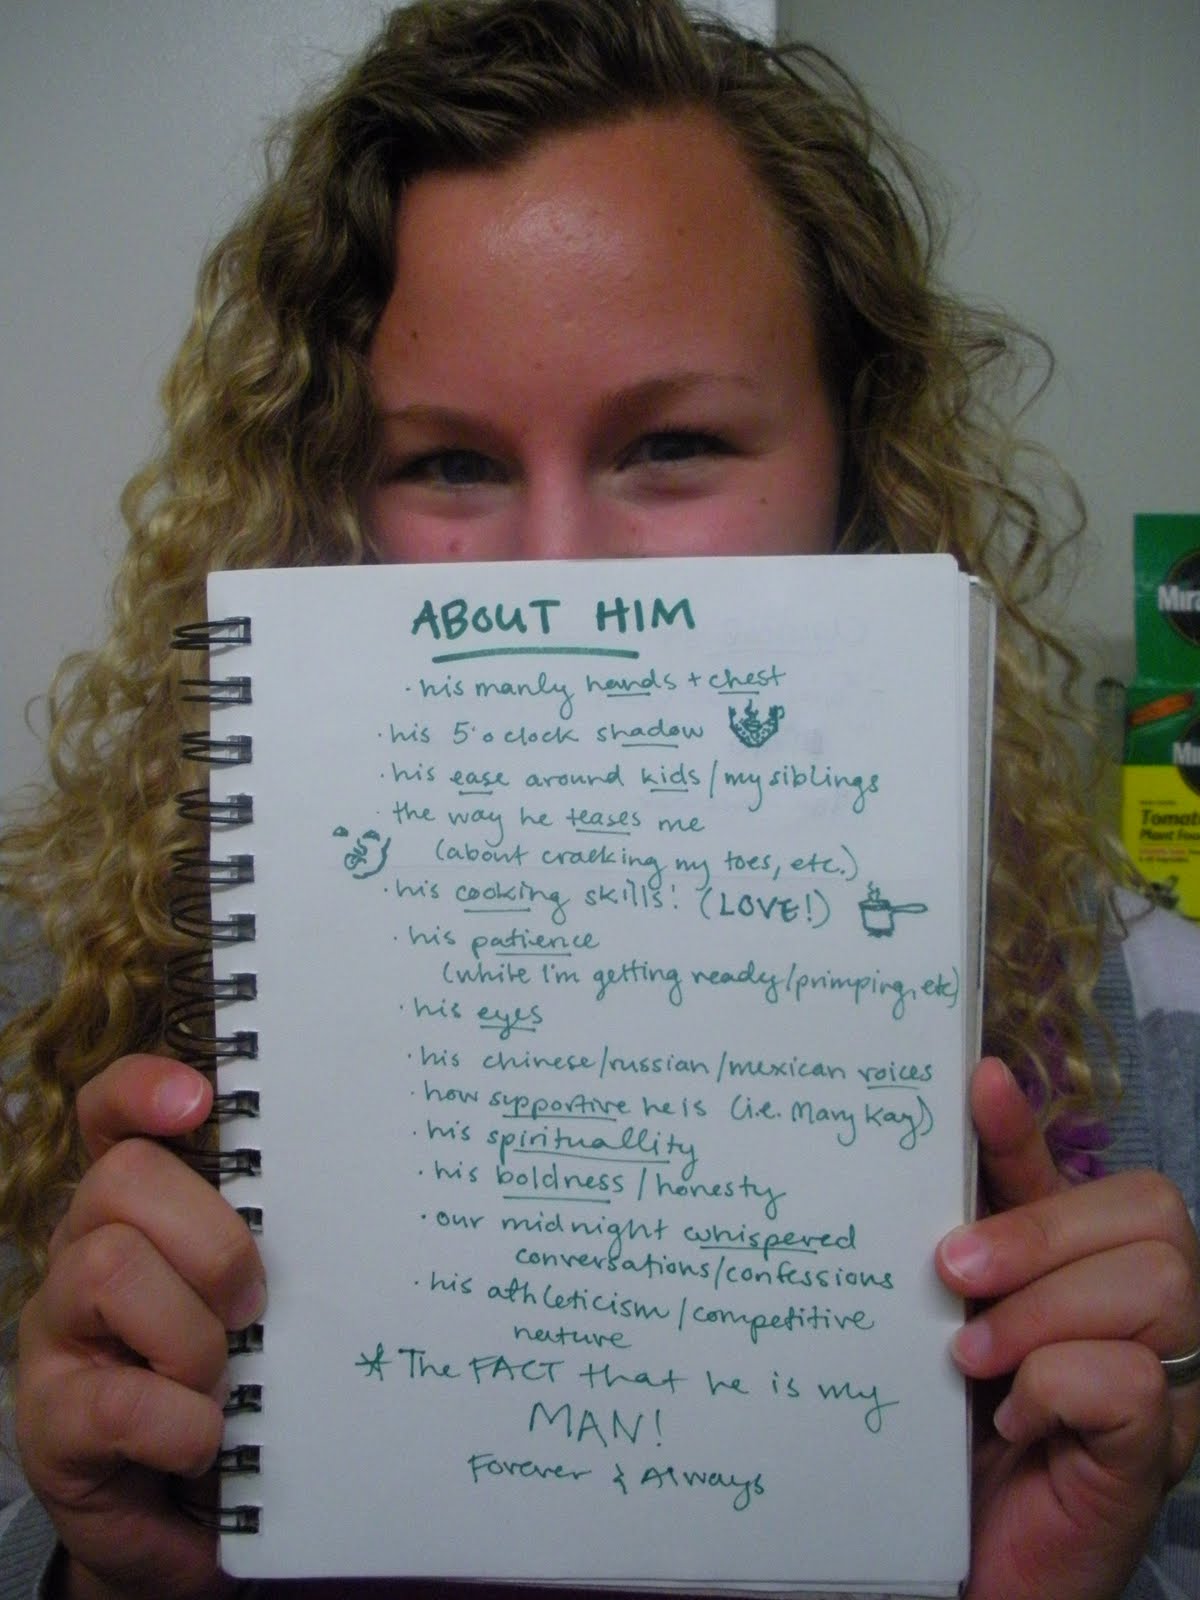 ABOUT HIM
· his manly hands + chest
· his 5'o clock shadow
· his ease around kids/my siblings
· the way he teases me
(about cracking my toes, etc.)
· his cooking skills! (LOVE!)
· his patience
(while I'm getting ready/primping, etc)
· his eyes
· his chinese/russian/mexican voices
· how supportive he is (i.e. Mary Kay)
· his spirituallity
· his boldness/honesty
· our midnight whispered
conversations/confessions
· his athleticism/competitive
nature
* The FACT that he is my
MAN!
Forever & Always
Mira
Mi
Tomat
Plant Foo